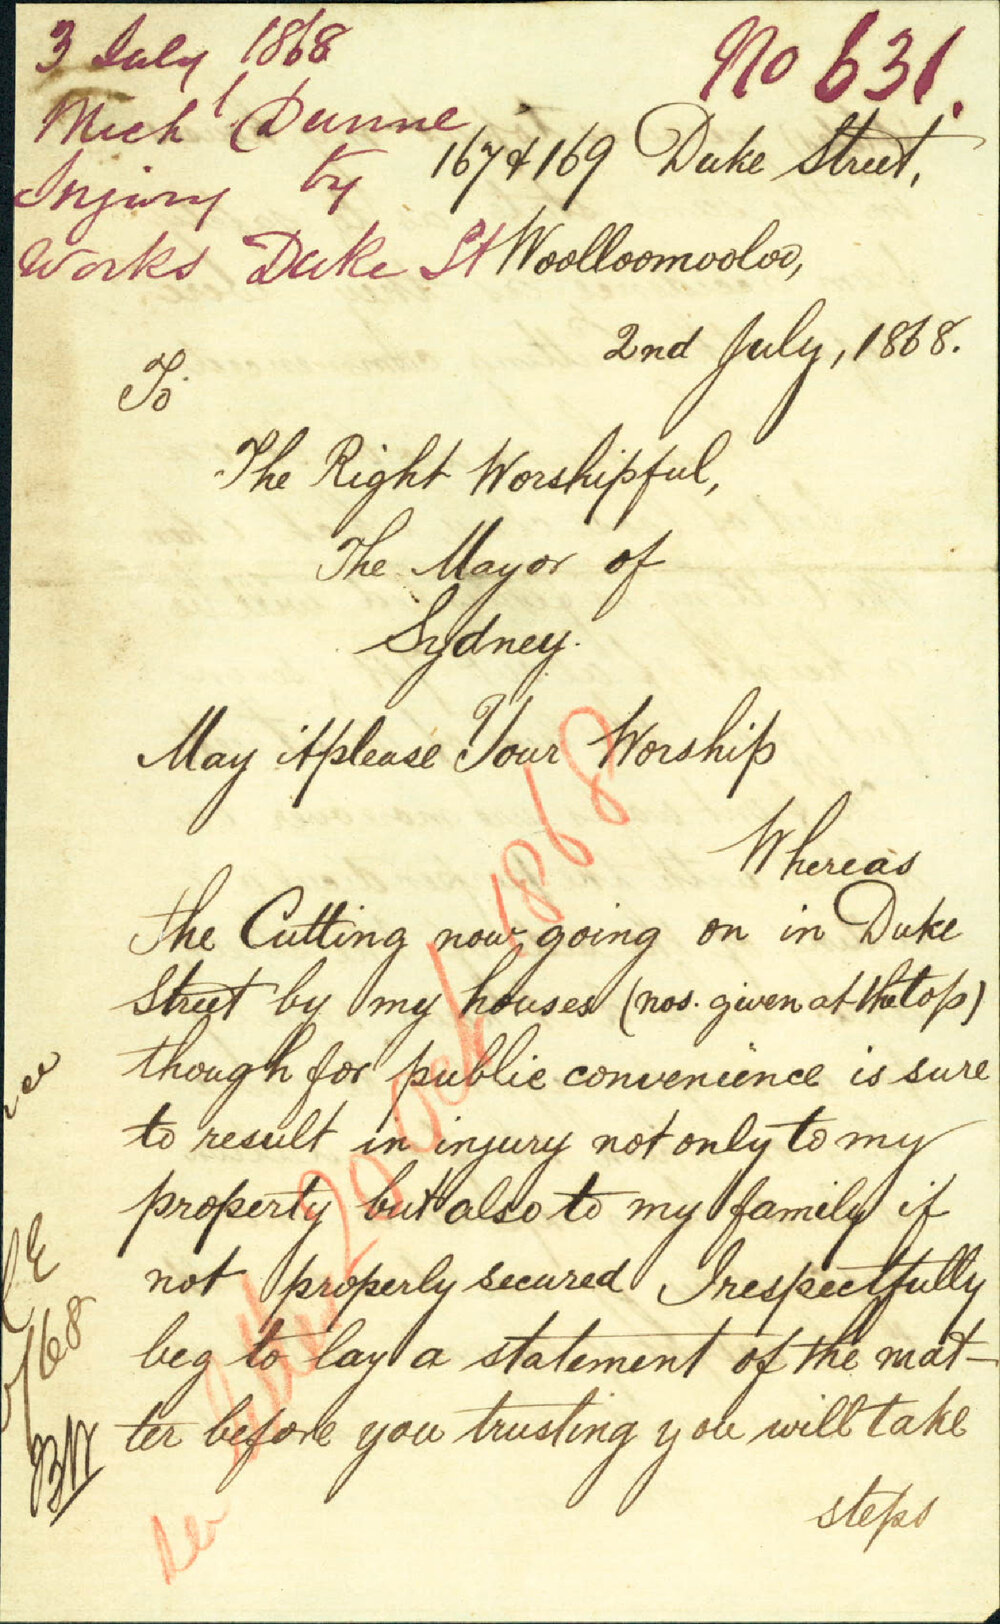 3 July 1868
No 631.
Mich Dunne
Injury by
Works Duke St
167 & 169 Duke Street,
Woolloomooloo,
2nd July, 1868.
To
The Right Worshipful,
The Mayor of
Sydney.
May it please Your Worship
Whereas
the Cutting now going on in Duke
Street by my houses (nos. given at the top)
though for public convenience is sure
to result in injury not only to my
property but also to my family if
not properly secured I respectfully
beg to lay a statement of the mat-
ter before you trusting you will take
steps
20 Oct 1868
/68